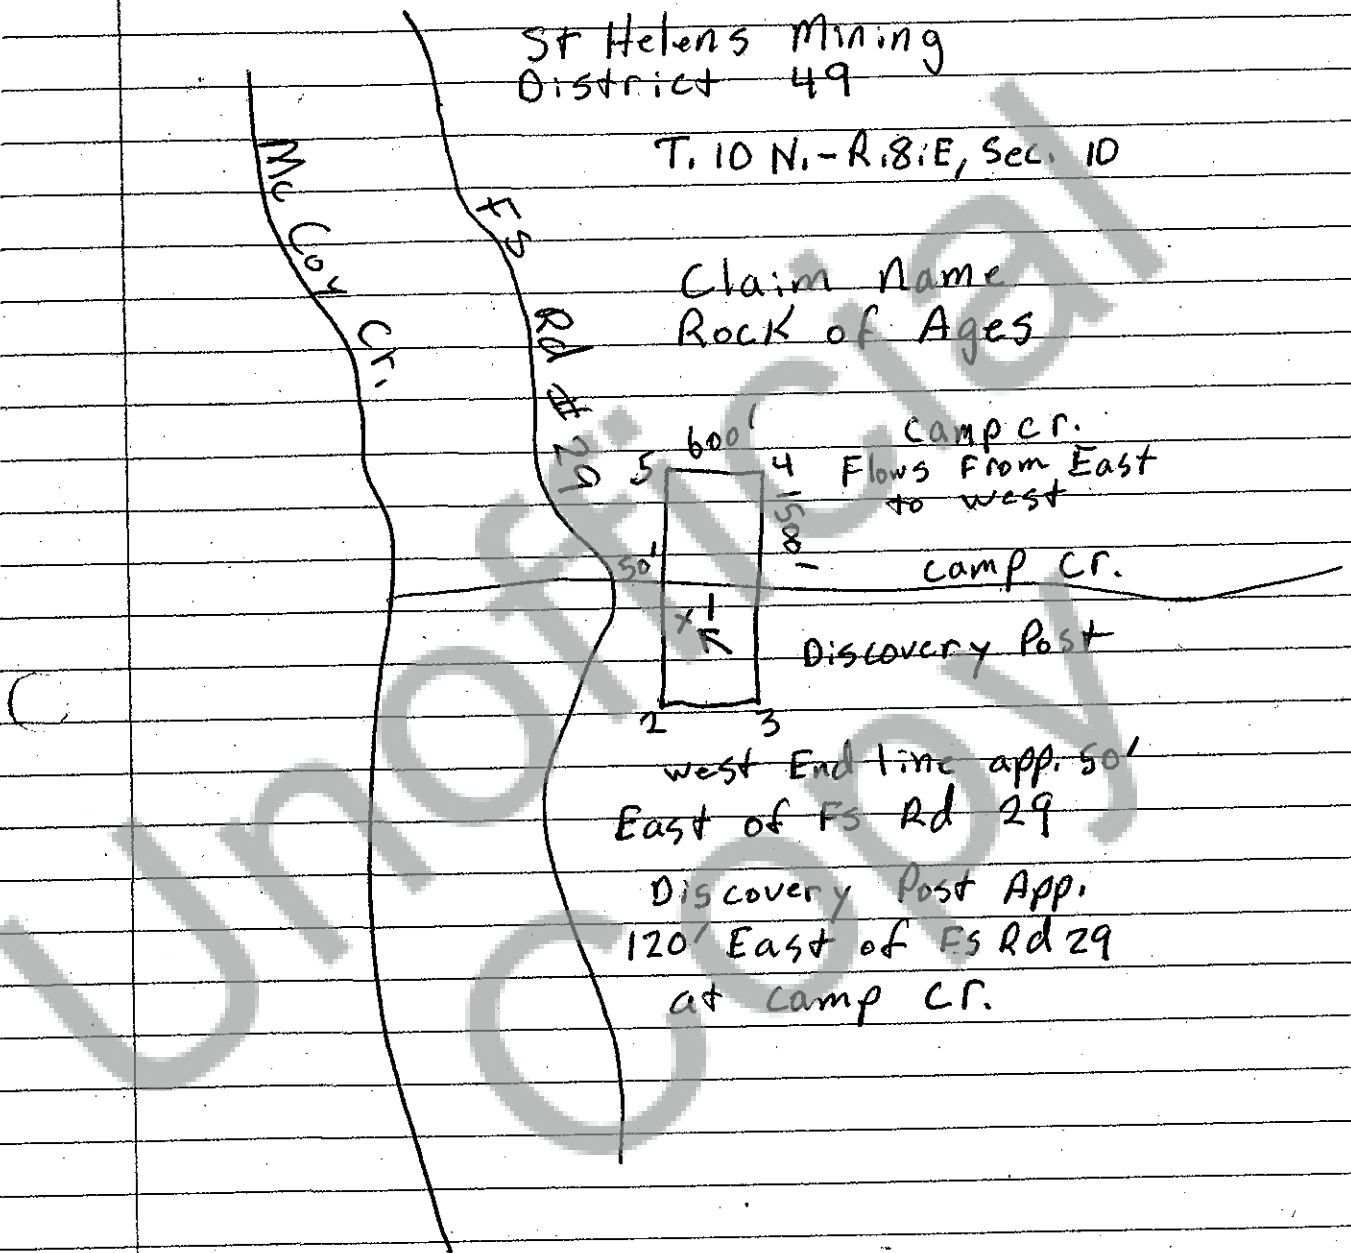 St Helens Mining
District 49
T. 10 N. - R. 8. E, Sec. 10
Mc Coy Cr.
FS Rd # 29
Claim Name
Rock of Ages
600'
Camp cr.
5
4
Flows From East
to west
50'
camp cr.
1
Discovery Post
2
3
west End line app. 50'
East of Fs Rd 29
Discovery Post App.
120' East of Fs Rd 29
at camp cr.
Unofficial
Copy